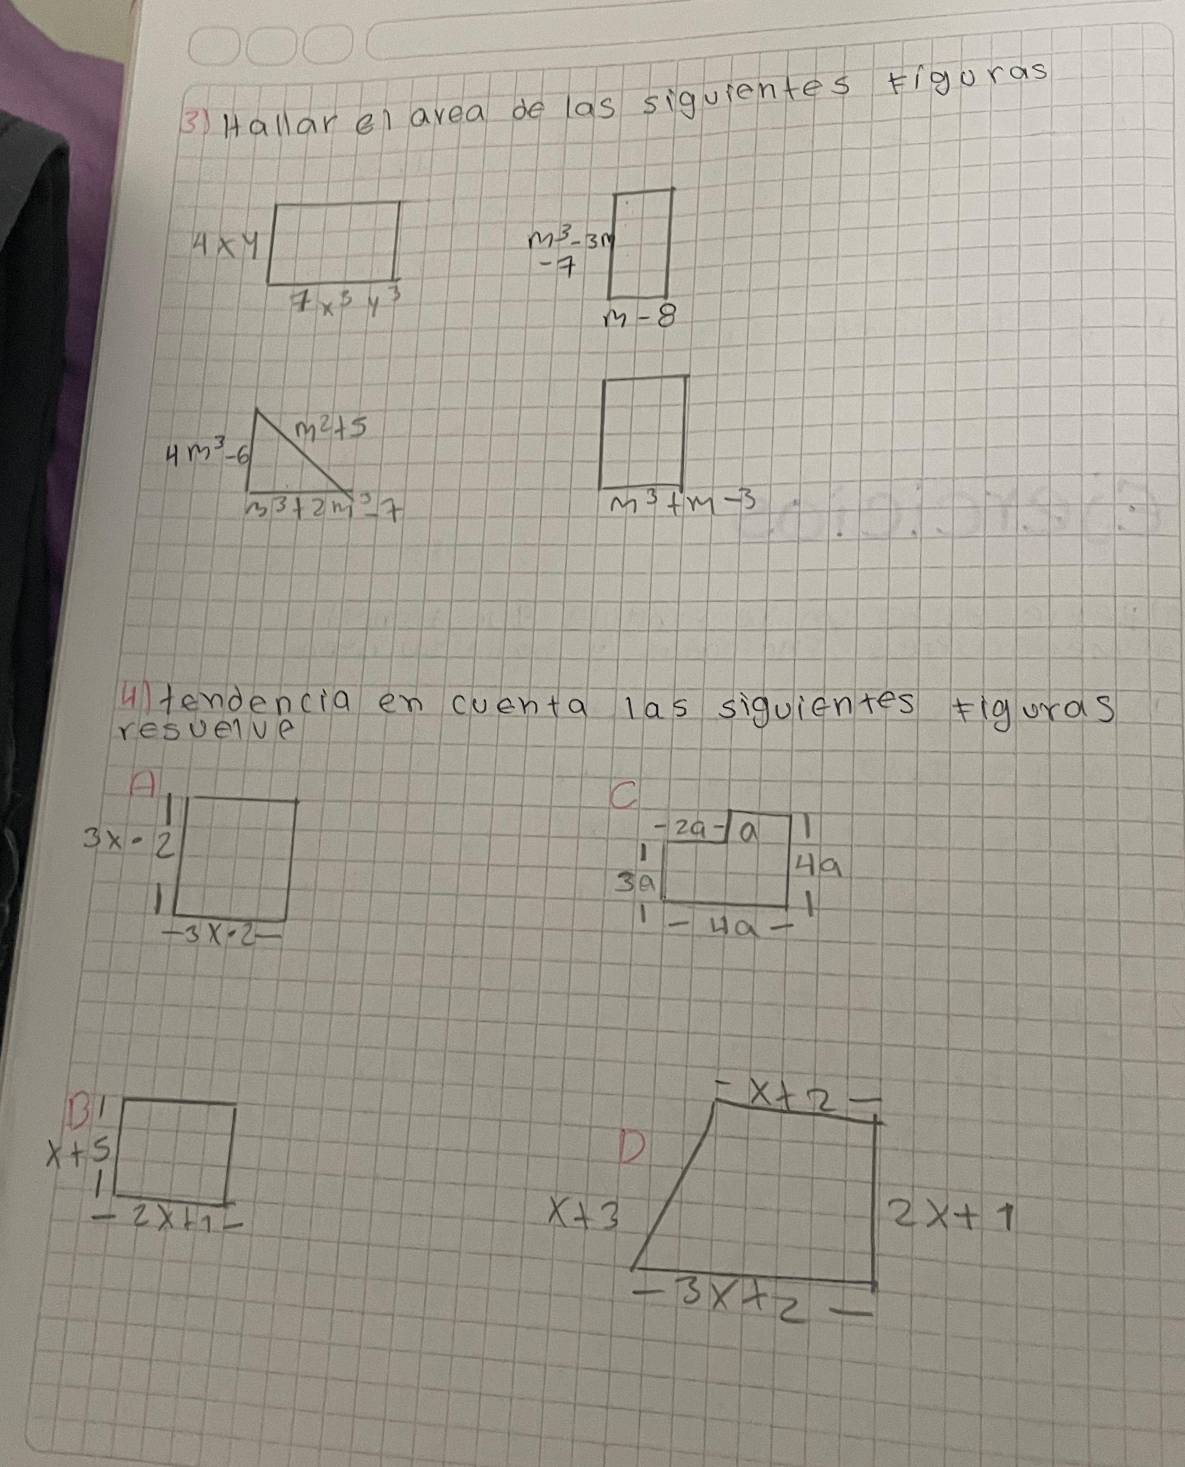 3) Hallar el area de las siguientes figuras
4xy
7x³y³
m³-3m
-7
m-8
4m³-6
m²+5
m³+2m³-7
m³+m-3
4) tendencia en cuenta las siguientes figuras
resuelve
A
3x·2
-3x·2-
C
-2a-
a
3a
4a
-4a-
B
x+5
-2x+1-
D
-x+2-
x+3
2x+1
-3x+2-